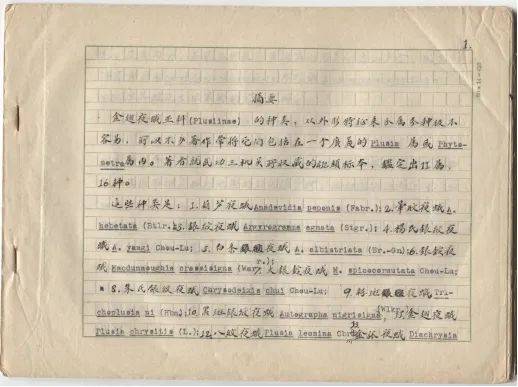 1.
摘要
金翅夜蛾亚科(Plusiinae) 的种类，以外形特征来分属分种极不
容易，所以不少著作常将它们包括在一个广泛的 Plusia 属或 Phyto-
metra属内。著者就 所 权威的 标本，鉴定出11属，
16种。
这些种类是：1. 葫芦夜蛾Anadevidia peponis (Fabr.);2. 夜蛾A.
hebetata (Btlr. 3.银纹夜蛾 Argyrogramma agnata (Stgr.); 4.杨氏银纹夜
蛾 A. yangi Chou-Lu; 5.白条 夜蛾 A. albistriata (Br.-Gn);6.银锭夜
蛾 Macdunnoughia crassisigna (War r.); 7.大银锭夜蛾 M. spiocornutata Chou-Lu;
8.朱氏银纹夜蛾 Chrysodeixis chui Chou-Lu; 9. 夜蛾 Tri-
choplusia ni (Hbn);10.黑斑银纹夜蛾 Autographa nigrisigna (Wlkr.), 11金翅夜蛾
Plusia chrysitis (L.);12.八纹夜蛾Plusia leonina Obr 13金 夜蛾 Diachrysia